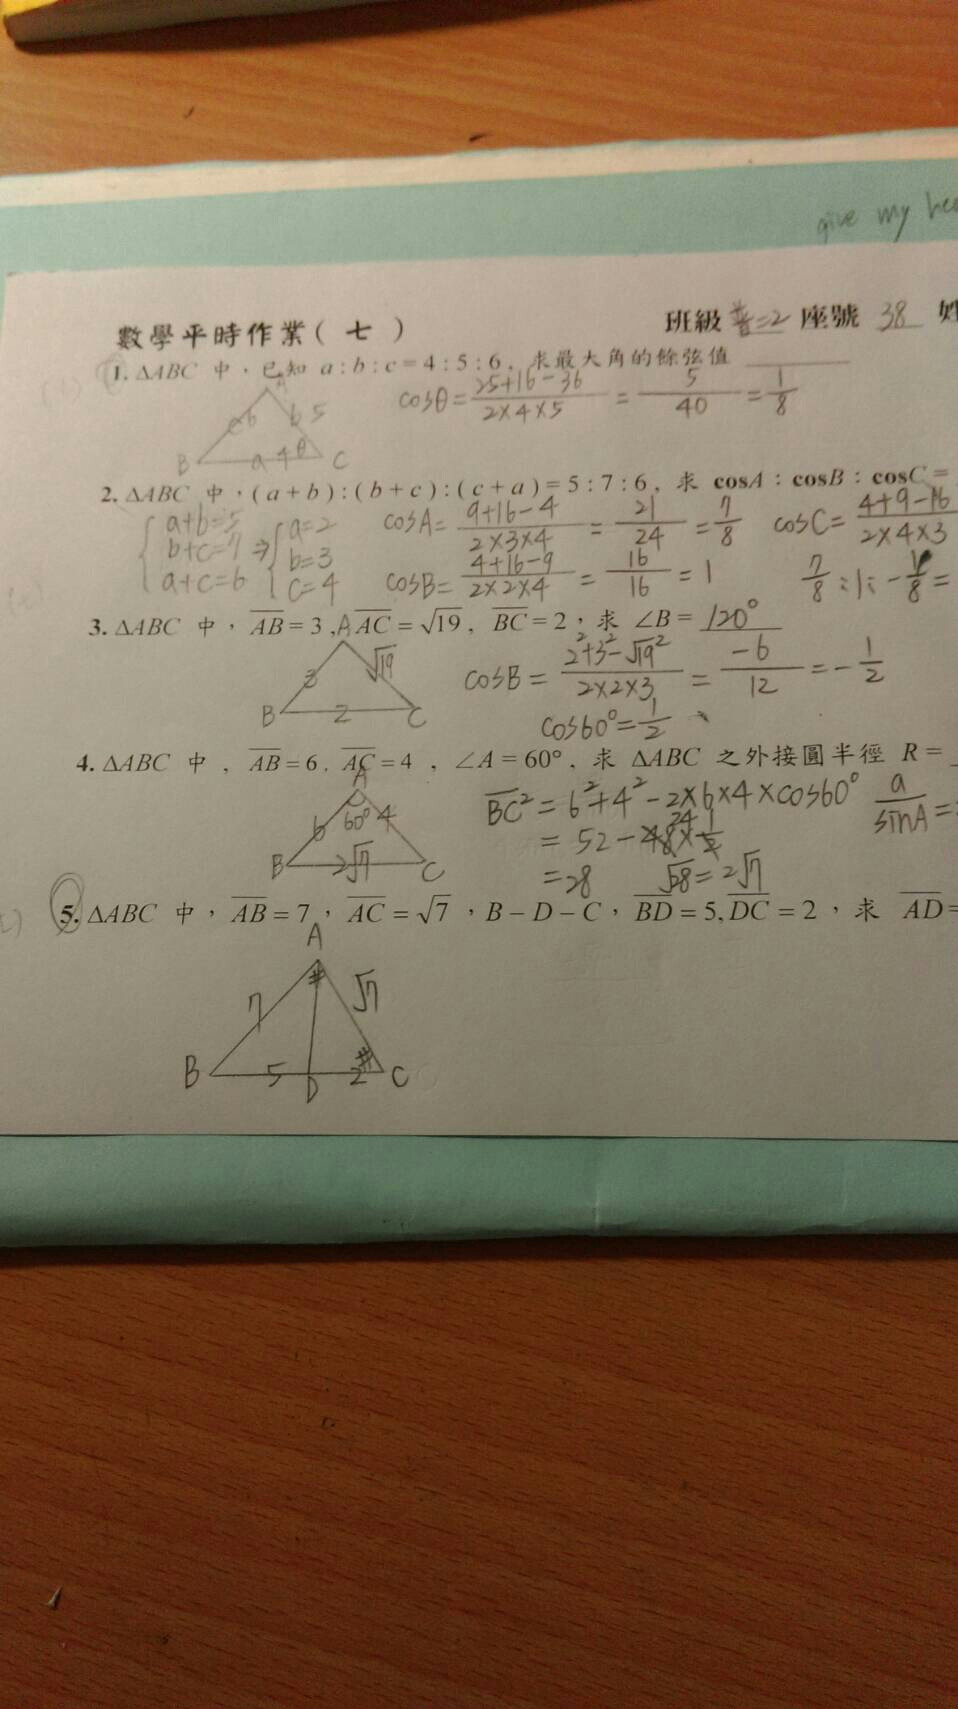 give my
數學平時作業(七)
班級 普二2 座號 38 姓
1. ΔABC 中,已知 a:b:c=4:5:6, 求最大角的餘弦值
A
c 6 b 5
B a 4 θ C
cosθ = (25+16-36)/(2×4×5) = 5/40 = 1/8
2. ΔABC 中,(a+b):(b+c):(c+a)=5:7:6, 求 cosA:cosB:cosC=
{ a+b=5
b+c=7
a+c=6
⇒ { a=2
b=3
c=4
cosA = (9+16-4)/(2×3×4) = 21/24 = 7/8
cosC = (4+9-16)/(2×4×3
cosB = (4+16-9)/(2×2×4) = 16/16 = 1
7/8 : 1 : -1/8 =
3. ΔABC 中, AB=3, AC=√19, BC=2, 求 ∠B= 120°
A
3 √19
B 2 C
cosB = (2²+3²-√19²)/(2×2×3) = -6/12 = -1/2
cos60° = 1/2
4. ΔABC 中, AB=6, AC=4, ∠A=60°, 求 ΔABC 之外接圓半徑 R=
A
6 60° 4
B 2√7 C
BC² = 6²+4²-2×6×4×cos60°
= 52-48×1/2
24
=28 √28=2√7
a/sinA =
5. ΔABC 中, AB=7, AC=√7, B-D-C, BD=5, DC=2, 求 AD=
A
7 √7
B 5 D 2 C